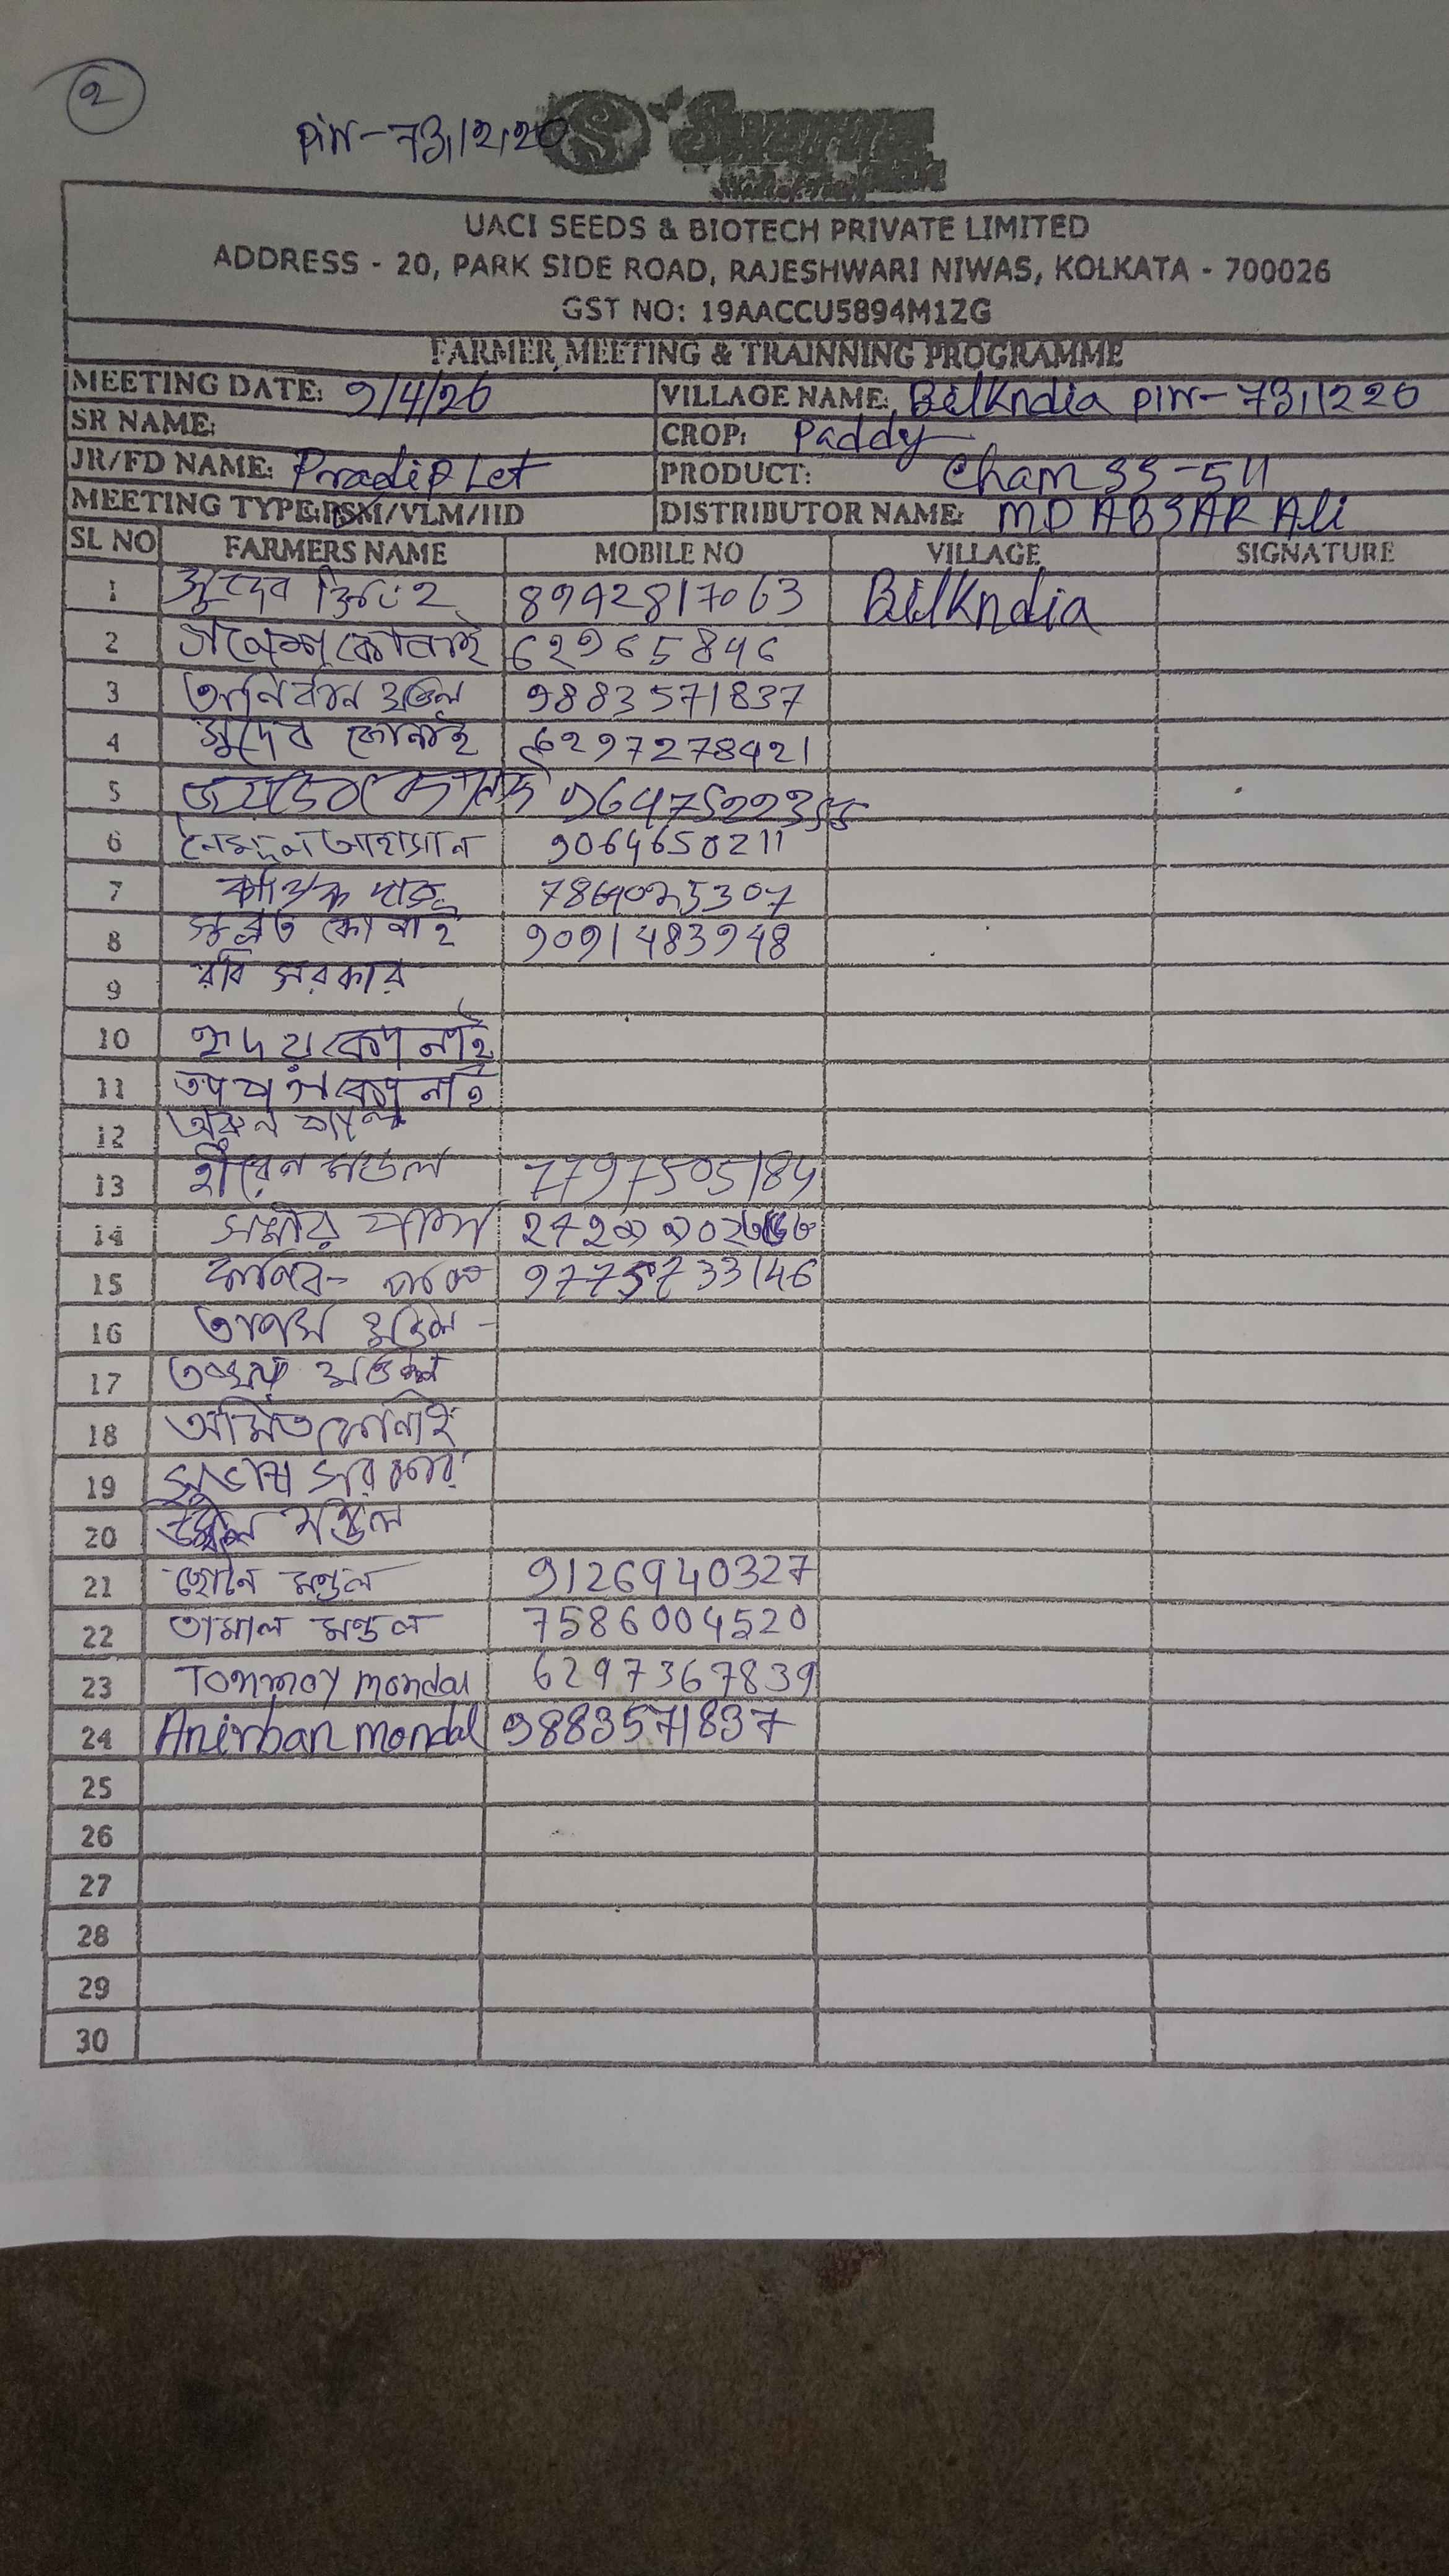 2
Pin-731220
UACI SEEDS & BIOTECH PRIVATE LIMITED
ADDRESS - 20, PARK SIDE ROAD, RAJESHWARI NIWAS, KOLKATA - 700026
GST NO: 19AACCU5894M1ZG
FARMER MEETING & TRAINNING PROGRAMME
MEETING DATE: 9/4/26 VILLAGE NAME: Bilkndia Pin-731220
SR NAME: CROP: Paddy
JR/FD NAME: Pradip Let PRODUCT: Cham SS-511
MEETING TYPE: PSM/VLM/IID DISTRIBUTOR NAME: MD ABSAR Ali
SL NO FARMERS NAME MOBILE NO VILLAGE SIGNATURE
1 সুদেব সিংহ 8942817063 Bilkndia
2 গনেশ কোনাই 62965846
3 অনির্বান মন্ডল 9883571837
4 সুদেব কোনাই 6297278421
5 জয়দেব কোনাই
6 আহাসান 9064650211
7 কার্ত্তিক দাস
8 সুব্রত কোনাই 9091483948
9 রবি সরকার
10 হৃদয় কোনাই
11 তাপস কোনাই
12 অরুন
13 হীরেন মন্ডল 7797505184
14 সমীর পাল
15 9775733146
16 তাপস মন্ডল
17 মন্ডল
18 অমিত কোনাই
19 সুভাষ সরকার
20 মন্ডল
21 মন্ডল 9126940327
22 তামাল মন্ডল 7586004520
23 Tonmoy mondal 6297367839
24 Anirban mondal 9883571837
25
26
27
28
29
30